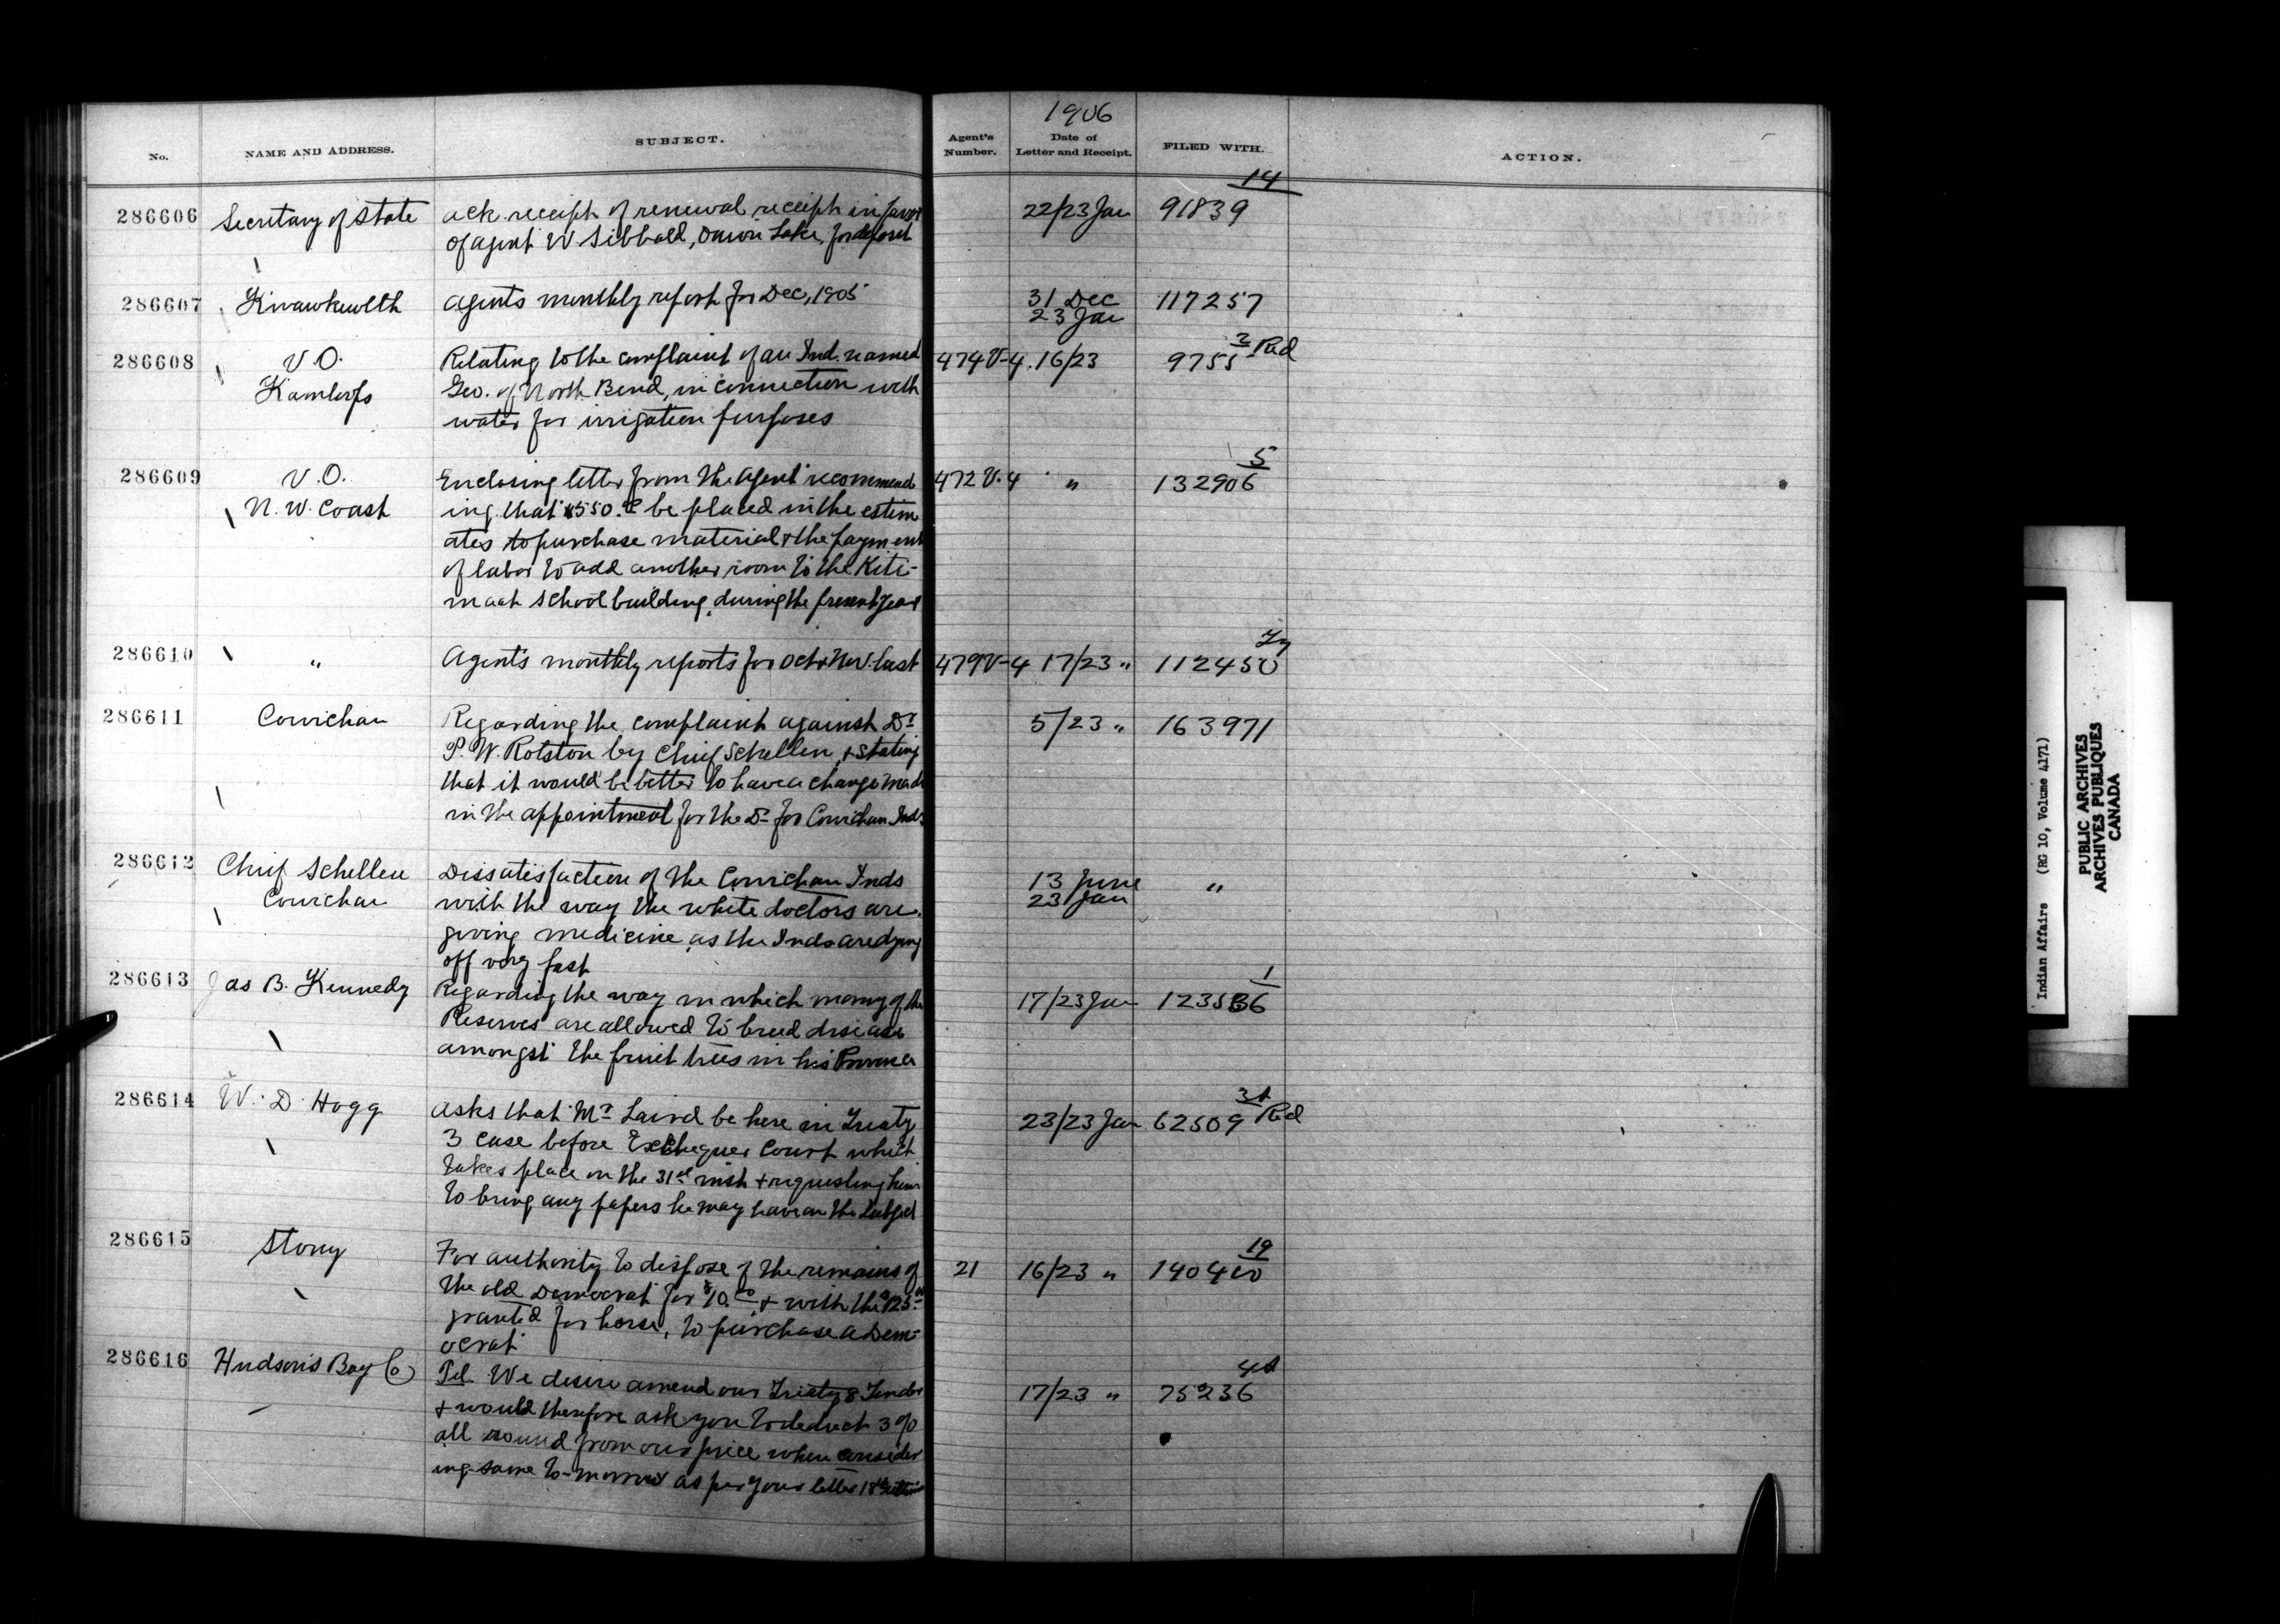 1906
No.
NAME AND ADDRESS.
SUBJECT.
Agent's Number.
Date of Letter and Receipt.
FILED WITH.
ACTION.
14
286606 Secretary of State ack. receipt of renewal receipt in favor 22/23 Jan 91839
of agent W. Sibbald, Onion Lake, for deposit
286607 Kwawkewlth Agents monthly report for Dec, 1905 31 Dec 117257
23 Jan
3 Red
286608 V.O. Relating to the complaint of an Ind. named 474 V-4. 16/23 9755
Kamloops Geo. of North Bend, in connection with
water for irrigation purposes
5
286609 V.O. Enclosing letter from the Agent recommend 472 V.4 " 132906
N. W. Coast ing that $550.00 be placed in the estim
ates to purchase material & the payment
of labor to add another room to the Kiti-
maat School building, during the present year
286610 " Agent's monthly reports for Oct & Nov. last 479 V-4 17/23 " 112450
286611 Cowichan Regarding the complaint against Dr 5/23 " 163971
P. W. Rolston by Chief Schellen, & stating
that it would be better to have a change made
in the appointment for the Dr for Cowichan Inds
286612 Chief Schellen Dissatisfaction of the Cowichan Inds 13 June "
Cowichan with the way the white doctors are 23 Jan
giving medicine, as the Inds are dying
off very fast
1
286613 Jas B. Kennedy Regarding the way in which many of the 17/23 Jan 123536
Reserves are allowed to breed disease
amongst the fruit trees in his Province
Red
286614 W. D. Hogg asks that Mr Laird be here in Treaty 23/23 Jan 62509
3 case before Exchequer Court which
takes place on the 31st inst & requesting him
to bring any papers he may have on the subject
19
286615 Stony For authority to dispose of the remains of 21 16/23 " 140400
the old Democrat for $10.00 & with the $125.00
granted for horse, to purchase a Dem-
ocrat
286616 Hudson's Bay Co Tel. We desire amend our Treaty 8 Tender 17/23 " 75236
& would therefore ask you to deduct 3 %
all round from our price when consider
ing same to-morrow as per your letter 18th
Indian Affairs (RG 10, Volume 4171)
PUBLIC ARCHIVES
ARCHIVES PUBLIQUES
CANADA